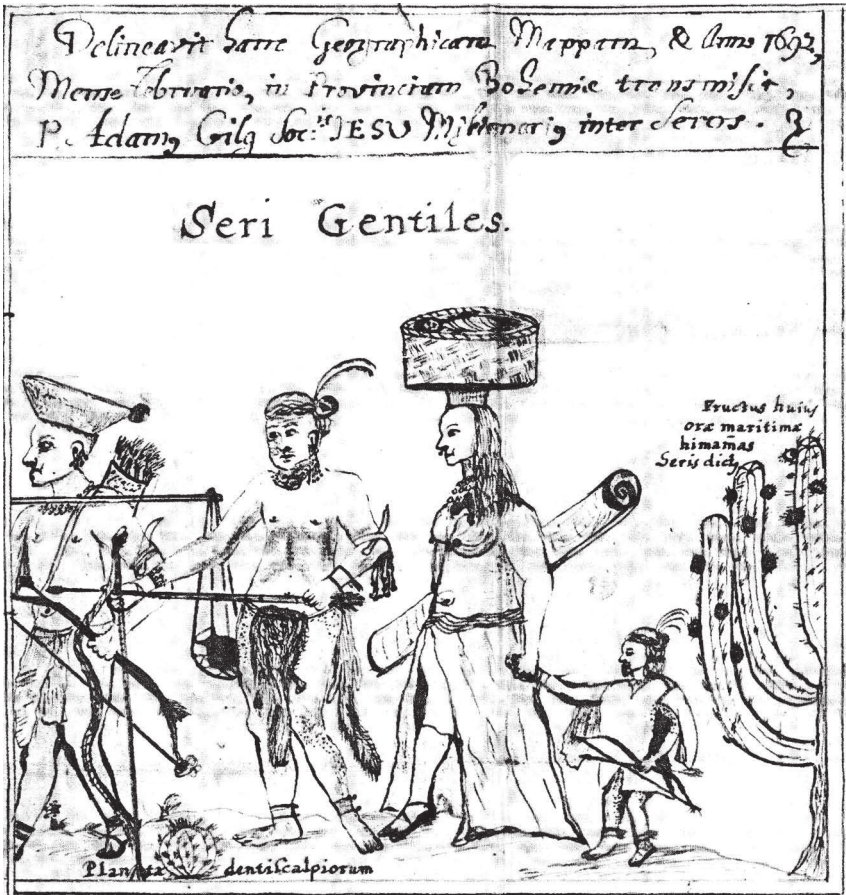 Delineavit hanc Geographicam Mappam, & Anno 1692,
Mense Februario, in Provinciam Bohemiæ transmisit,
P. Adamus Gilg Soc:is IESU Missionarius inter Seros.
Seri Gentiles.
Fructus huius
oræ maritimæ
himam̄as
Seris dict9
Planta dentiscalpiorum